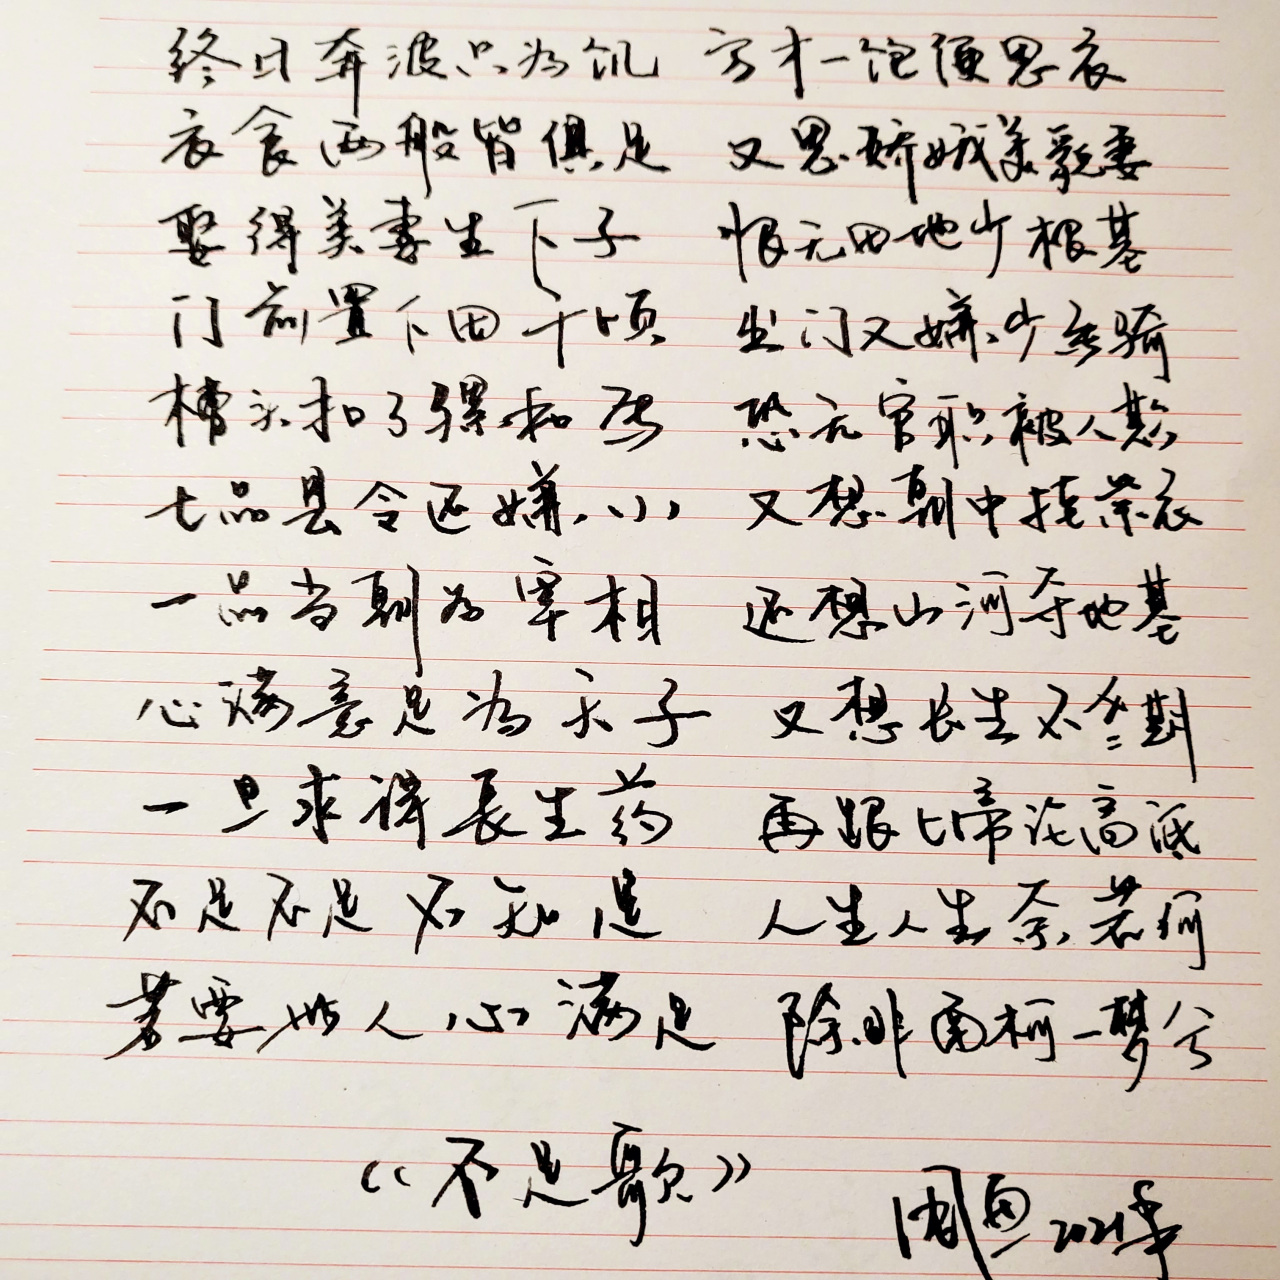 终日奔波只为饥 方才一饱便思衣
衣食两般皆俱足 又思娇娥美貌妻
娶得美妻生下子 恨无田地少根基
门前置下田千顷 出门又嫌少马骑
槽头扣了骡和马 恐无官职被人欺
七品县令还嫌小 又想朝中挂紫衣
一品当朝为宰相 还想山河夺地基
心满意足为天子 又想长生不老期
一旦求得長生药 再跟上帝论高低
不足不足不知足 人生人生奈若何
若要世人心满足 除非南柯一梦兮
《不足歌》
2021年